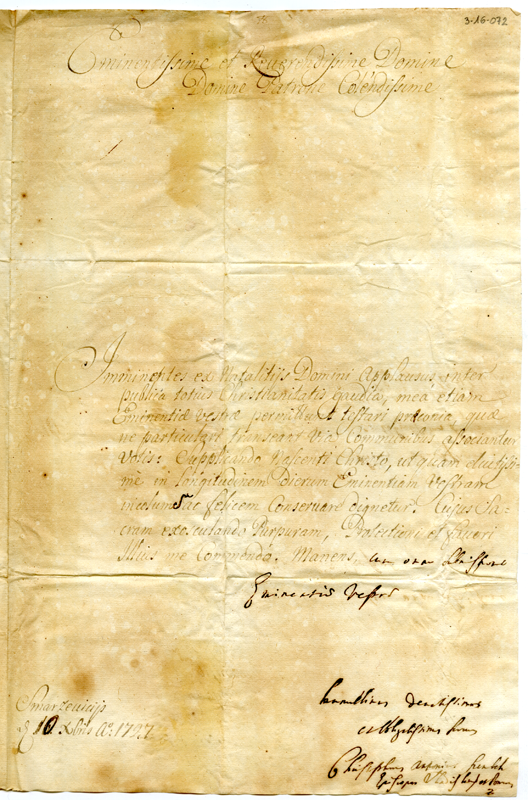 3-16-072
Eminentissime et Reverendissime Domine
Domine Patrone Colendissime
Imminentes ex Natalitijs Domini Applausus, inter
publica totius Christianitatis gaudia, mea etiam
Eminentiæ vestræ permittet testari præcordia, quæ
ne particulari transeant via Communibus associantur
Votis: Supplicando Nascenti Christo, ut quam diutissi-
me in longitudinem Dierum Eminentiam Vestram
incolumem ac felicem Conservare dignetur. Cujus Sa-
cram exosculando Purpuram, Protectioni et favori
Illius me Commendo. Manens,
Eminentiæ Vestræ
Smarzevicijs
10 Xbris Aº 1727
humillimus
et obligatissimus
Episcopus